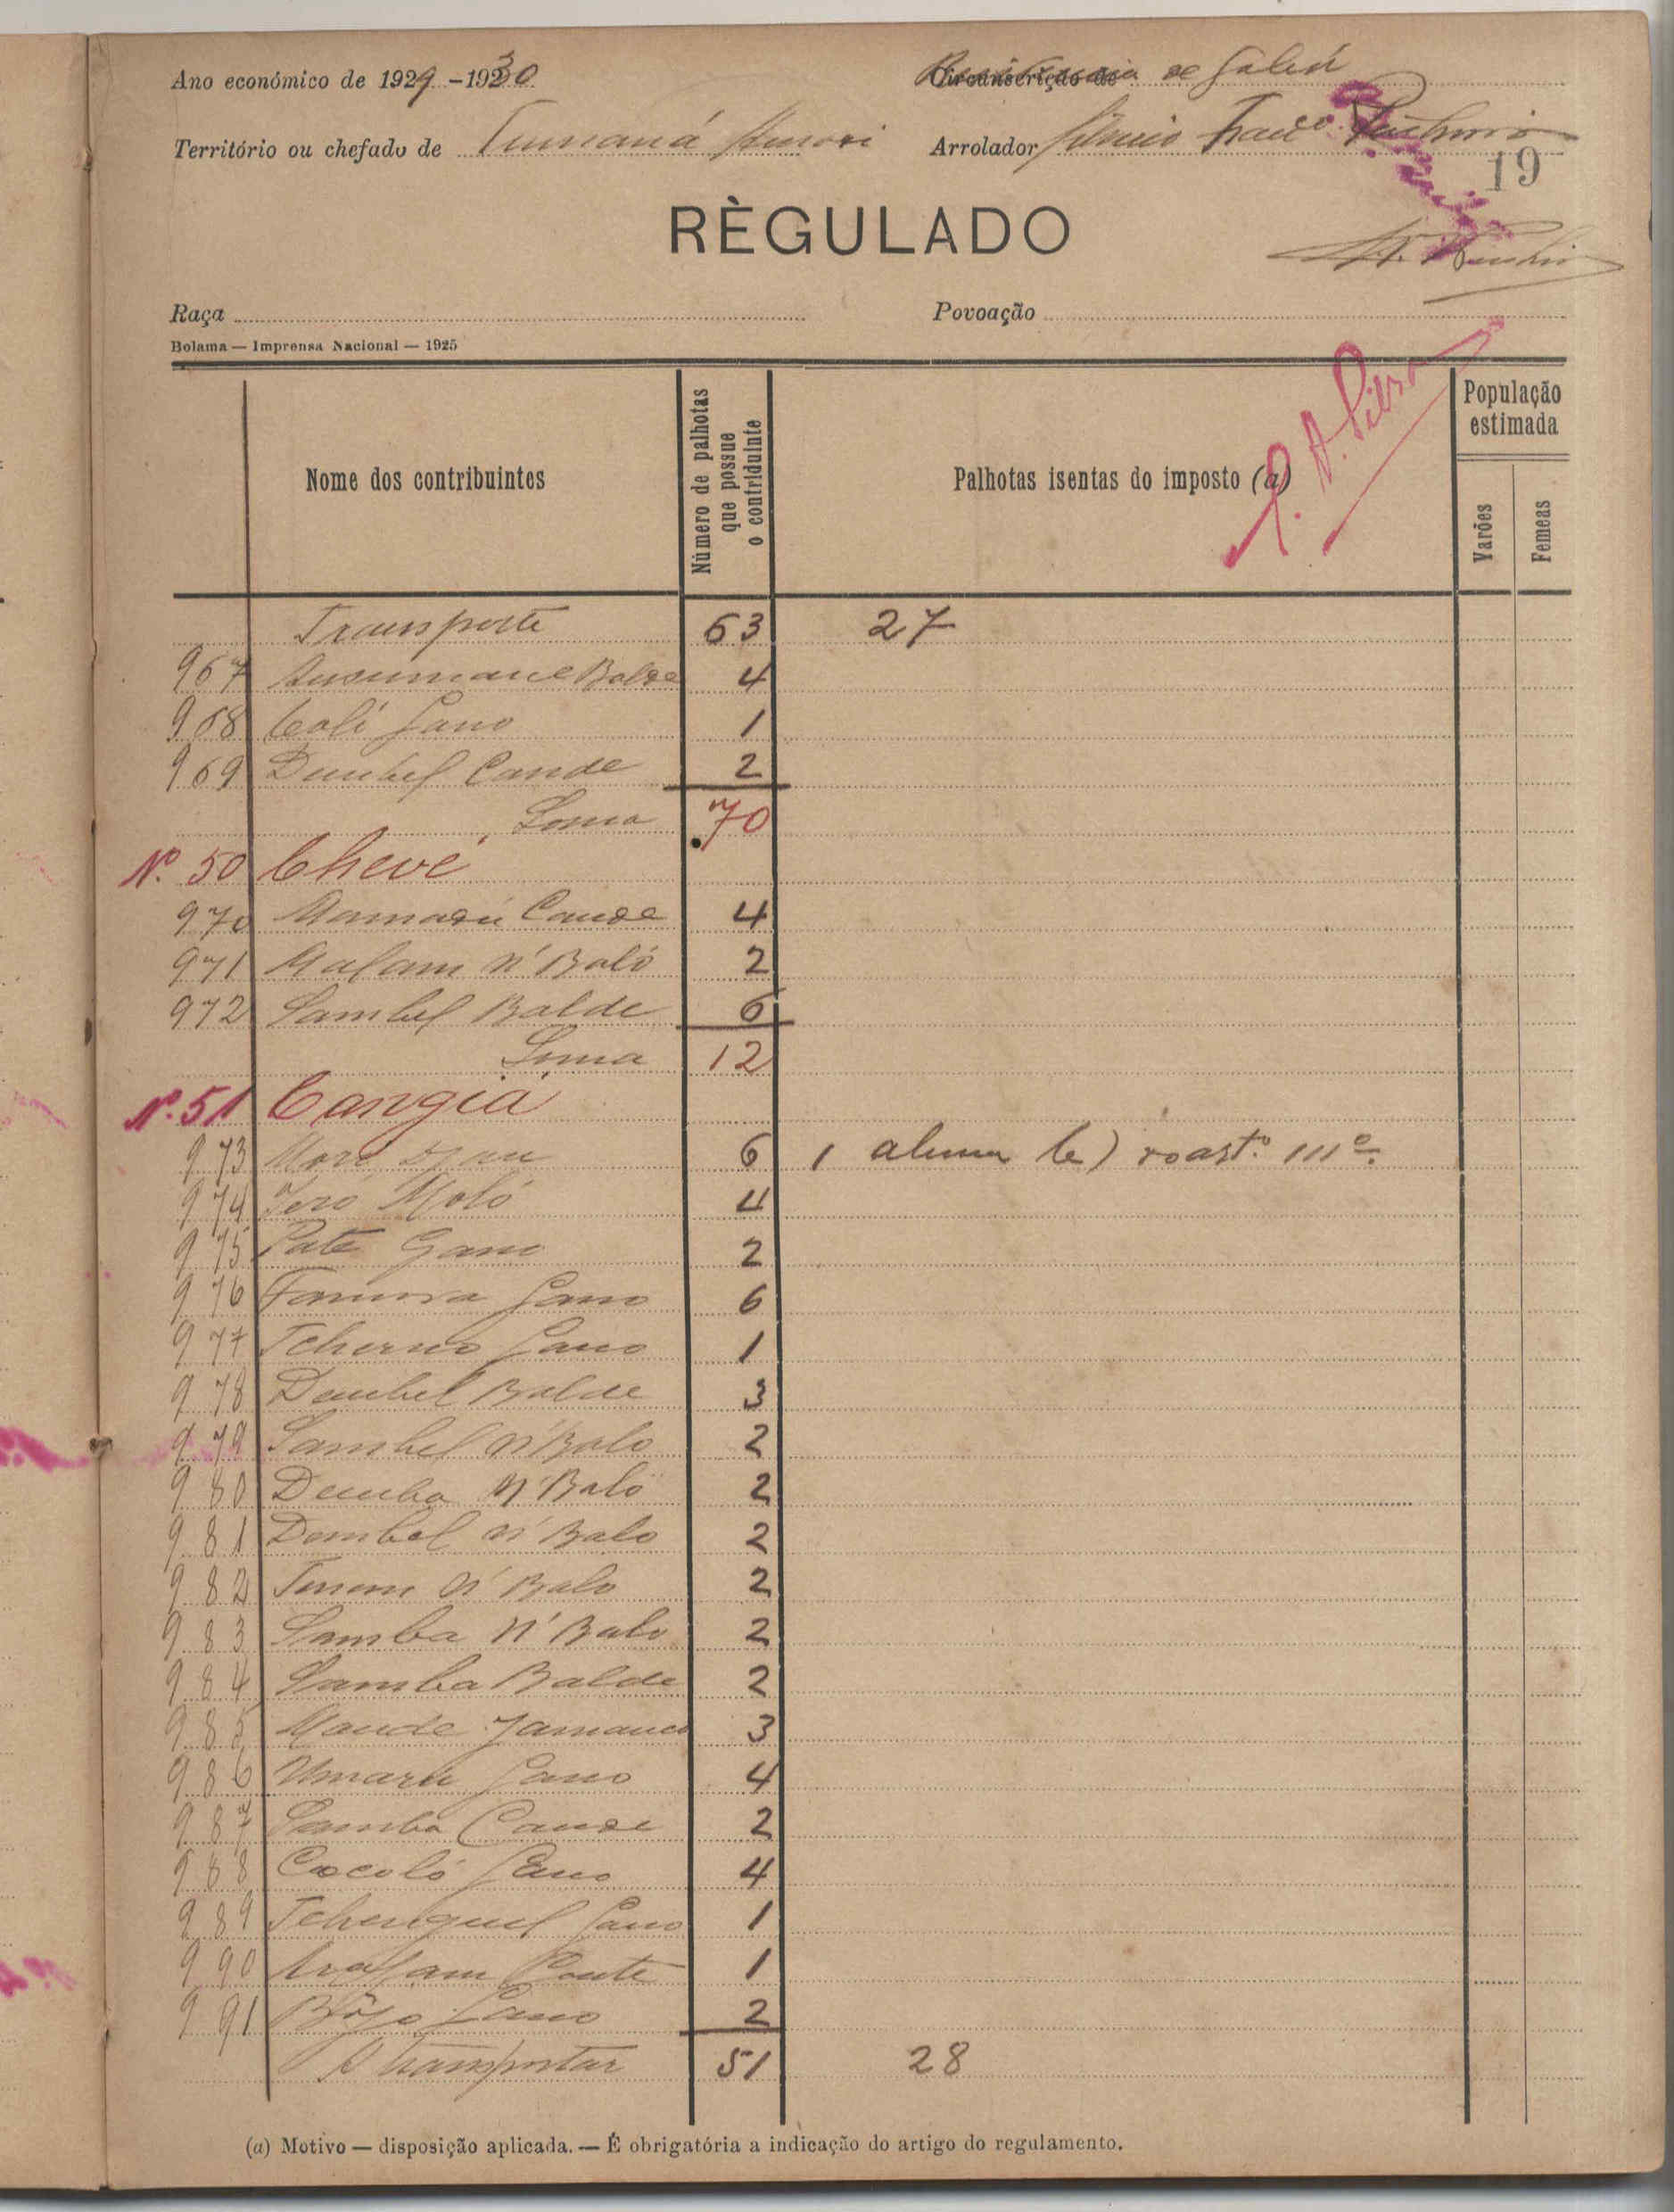 Ano económico de 1929-1930
Circunscrição de de Gabú
Território ou chefado de Tumaná
Arrolador
19
RÈGULADO
Raça
Povoação
Bolama — Imprensa Nacional — 1925
Nome dos contribuintes
Nùmero de palhotas que possue o contriduinte
Palhotas isentas do imposto (a)
População estimada
Varões
Femeas
Transporte 63 27
967 Ansumane Balde 4
968 Coli Gano 1
969 Dembel Cande 2
Soma 70
Nº 50 Chevé
970 Mamarú Cande 4
971 Malam N'Baló 2
972 Sambel Balde 6
Soma 12
Nº 51 Cangiá
973 6 1
974 Jeró Moló 4
975 Pate Gano 2
976 Gano 6
977 Tcherno Gano 1
978 Dembel Balde 3
979 Sambel N'Balo 2
980 Demba N'Baló 2
981 Dembel N'Balo 2
982 N'Balo 2
983 Samba N'Balo 2
984 Samba Balde 2
985 Maude 3
986 Umarú Gano 4
987 Samba Cande 2
988 Cocoló Gano 4
989 Gano 1
990 1
991 Gano 2
A transportar 51 28
(a) Motivo — disposição aplicada. — É obrigatória a indicação do artigo do regulamento.